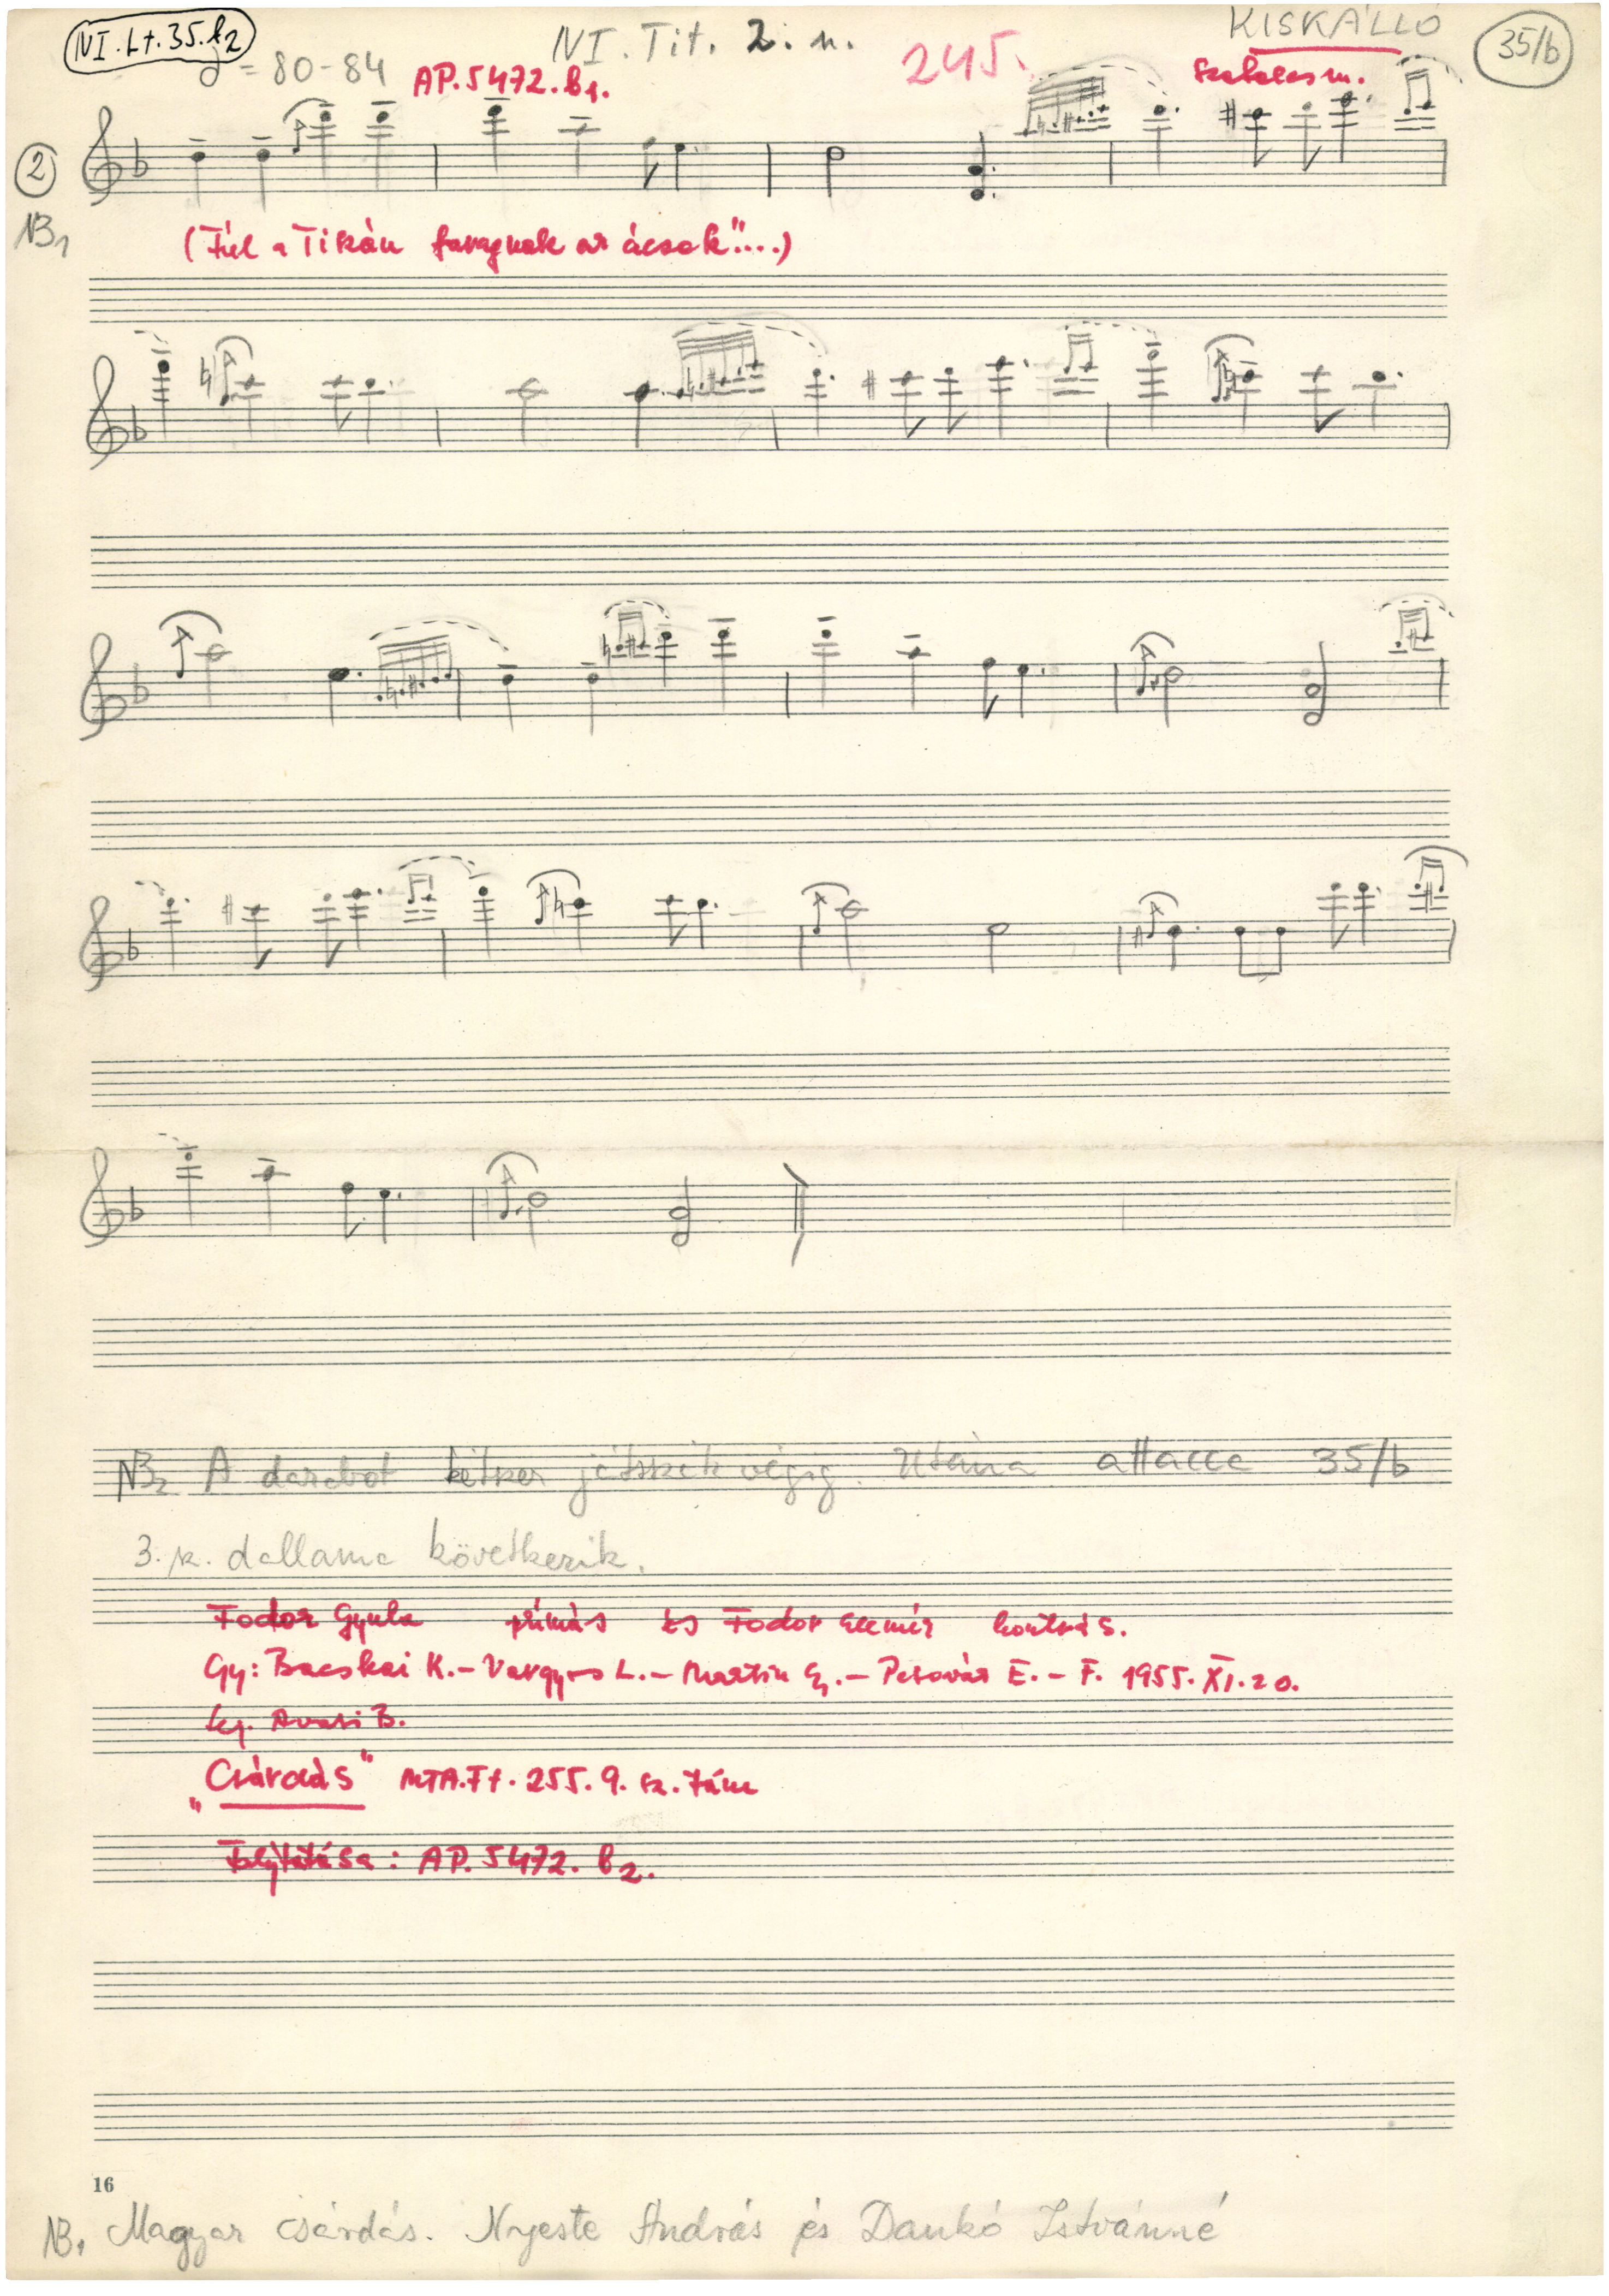 NI.Lt.35.b2
NI. Tit. 2. n.
245.
KISKÁLLÓ
35/b
= 80-84
AP. 5472. b1.
Szabolcs m.
2
NB1
(Túl a Tiszán faragnak az ácsok"....)
NB2 A darabot kétszer játszák végig. Utána attacca 35/b
3. sz. dallama következik.
Fodor Gyula prímás és Fodor Elemér kontrás.
Gy: Bacskai K. – Vargyas L. – Martin Gy. – Pesovár E. – F. 1955. XI. 20.
Lej. Avasi B.
„Csárdás" MTA. Ft. 255. 9. sz. tánc
Folytatása: AP. 5472. b2.
16
NB1 Magyar csárdás. Nyeste András és Dankó Istvánné